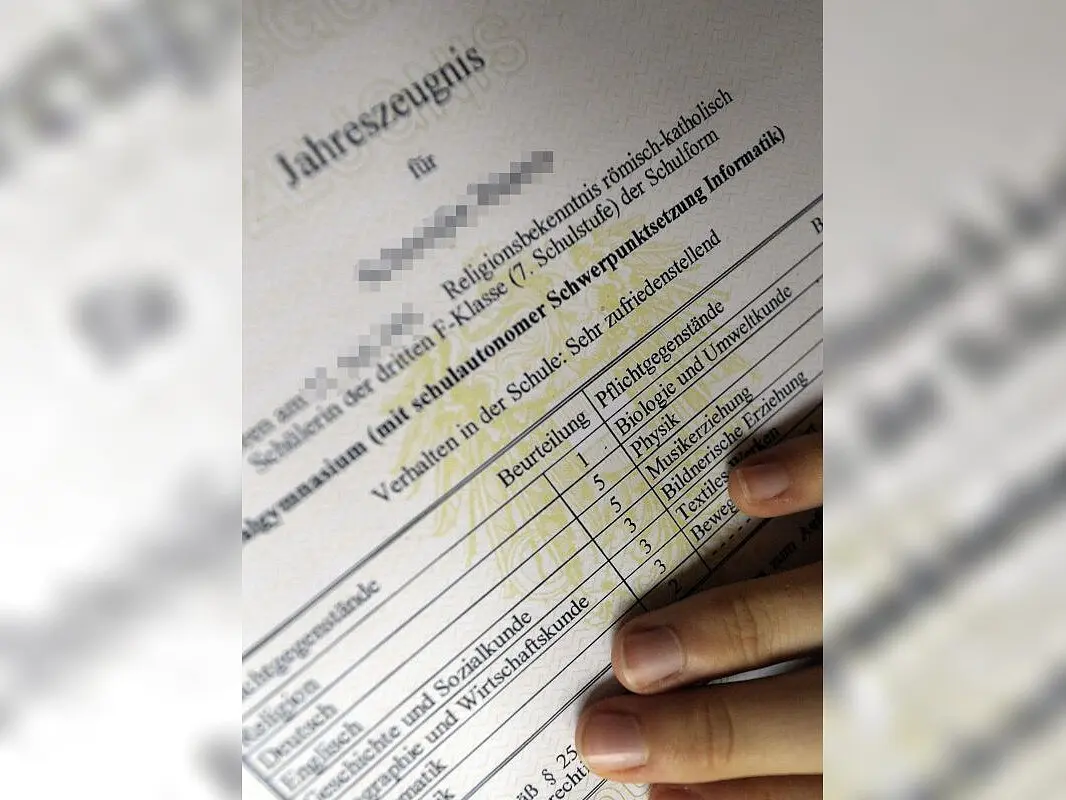 Jahreszeugnis
für
Religionsbekenntnis römisch-katholisch
Schülerin der dritten F-Klasse (7. Schulstufe) der Schulform
(mit schulautonomer Schwerpunktsetzung Informatik)
Verhalten in der Schule: Sehr zufriedenstellend
Beurteilung Pflichtgegenstände
Religion 1 Biologie und Umweltkunde
Deutsch 5 Physik
Englisch 5 Musikerziehung
Geschichte und Sozialkunde 3 Bildnerische Erziehung
und Wirtschaftskunde 3 Textiles
3
2
§ 25